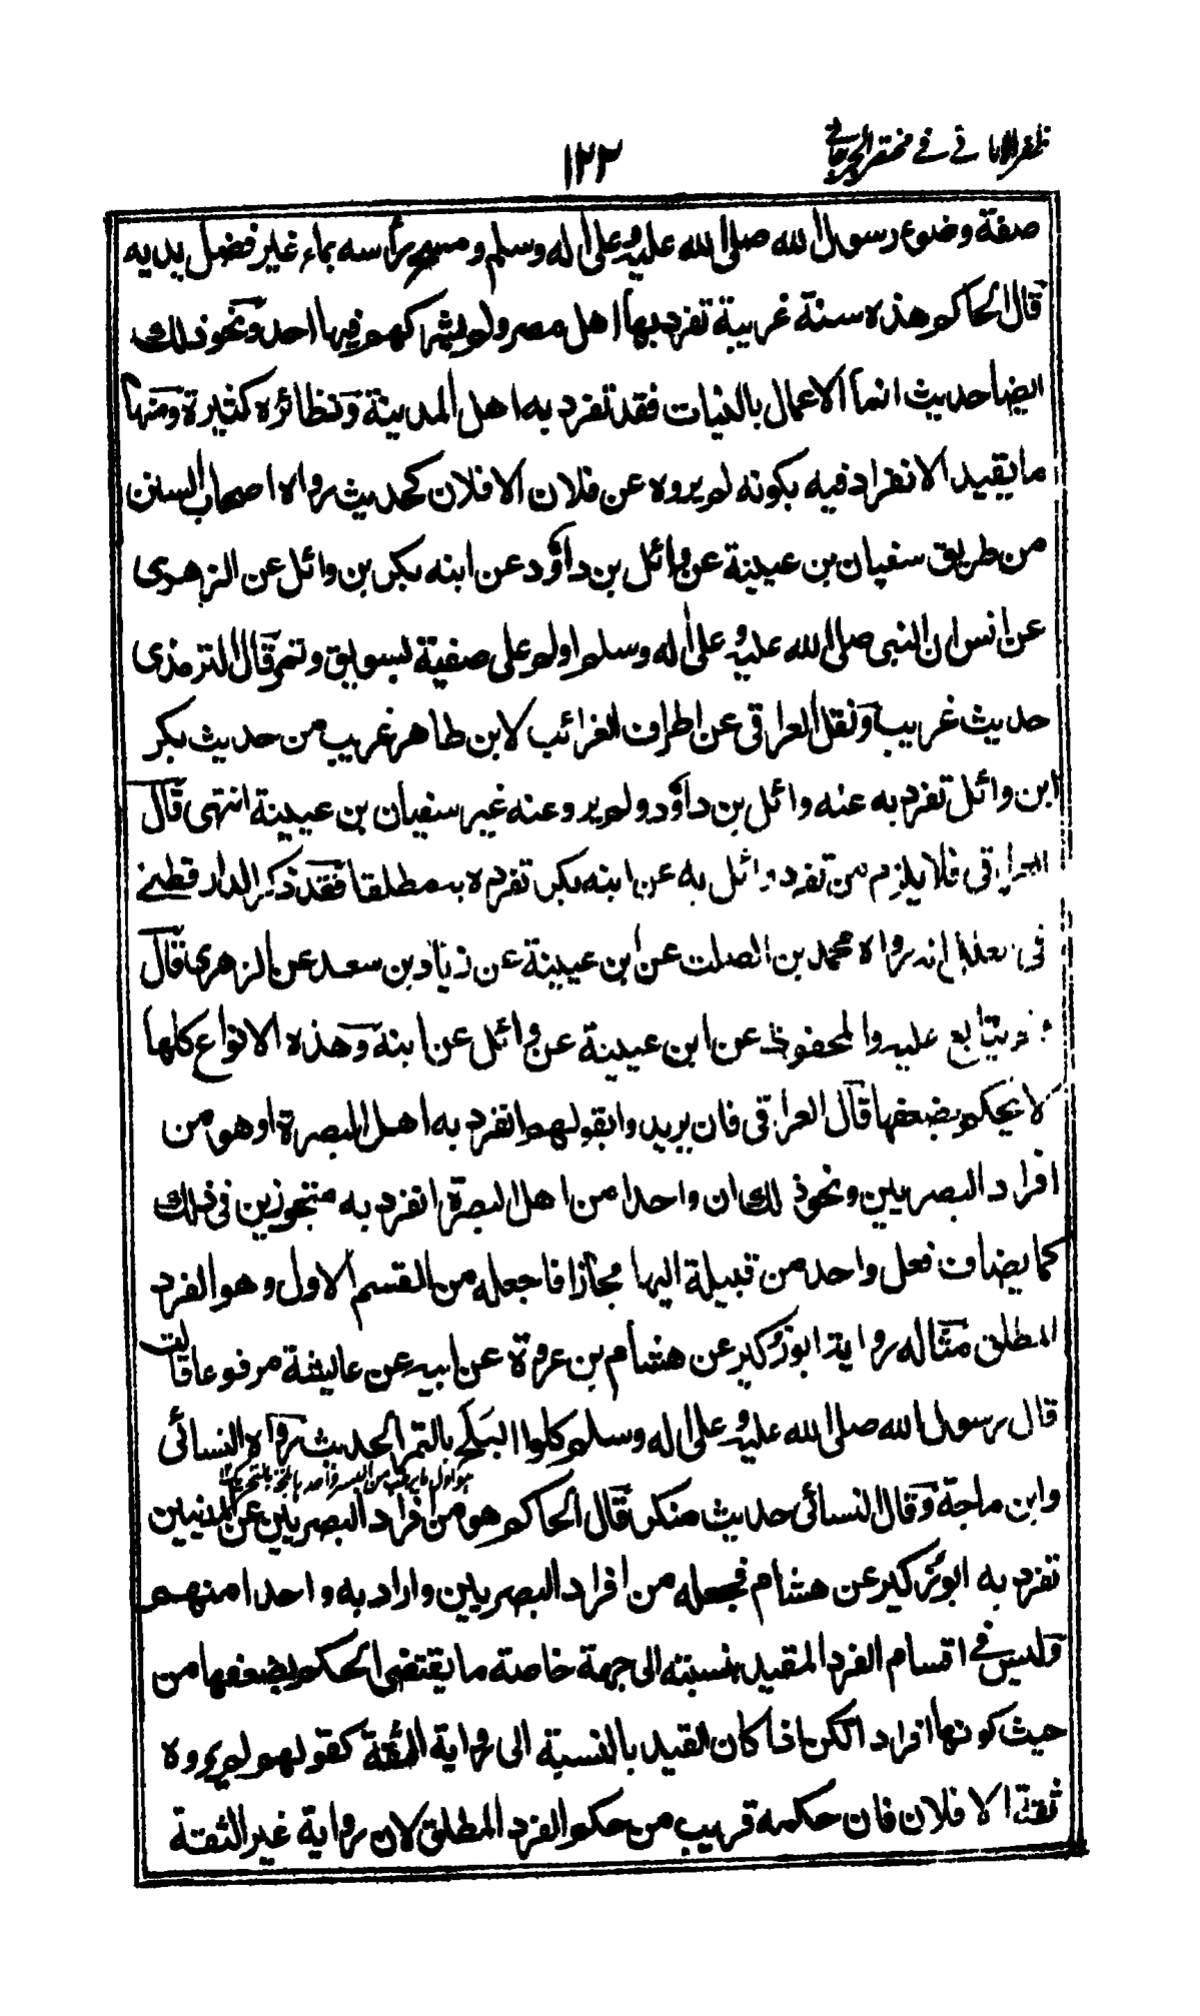 ظفر الامانى فے مختصر الجرجانے
١٢٢
صفة وضوء رسول الله صلى الله عليه وعلى اله وسلم ومسح رأسه بماء غير فضل يديه
قال الحاكم هذه سنة غريبة تفرد بها اهل مصر ولم يشركهم فيها احد ونحو ذلك
ايضا حديث انما الاعمال بالنيات فقد تفرد به اهل المدينة ونظائره كثيرة ومنها
ما يقيد الانفراد فيه بكونه لم يروه عن فلان الا فلان كحديث رواه اصحاب السنن
من طريق سفيان بن عيينة عن وائل بن داؤد عن ابنه بكر بن وائل عن الزهرى
عن انس ان النبى صلى الله عليه وعلى اله وسلم اولم على صفية بسويق وتمر قال الترمذى
حديث غريب ونقل العراقى عن اطراف الغرائب لابن طاهر غريب من حديث بكر
ابن وائل تفرد به عنه وائل بن داؤد ولم يرو عنه غير سفيان بن عيينة انتهى قال
العراقى فلا يلزم من تفرد وائل به عن ابنه بكر تفرده به مطلقا فقد ذكر الدارقطنے
فى علله انه رواه محمد بن الصلت عن ابن عيينة عن زياد بن سعد عن الزهرى قال
ولم يتابع عليه والمحفوظ عن ابن عيينة عن وائل عن ابنه وهذه الانواع كلها
لا يحكم بضعفها قال العراقى فان يريدوا بقولهم انفرد به اهل البصرة او هو من
افراد البصريين ونحو ذلك ان واحدا من اهل البصرة انفرد به متجوزين فى ذلك
كما يضاف فعل واحد من قبيلة اليها مجازا فاجعله من القسم الاول وهو الفرد
المطلق مثاله رواية ابو زكير عن هشام بن عروة عن ابيه عن عايشة مرفوعا قالت
قال رسول الله صلى الله عليه وعلى اله وسلم كلوا البلح بالتمر الحديث رواه النسائى
وابن ماجة وقال النسائى حديث منكر قال الحاكم هو من افراد البصريين عن المدنيين
تفرد به ابو زكير عن هشام فجعله من افراد البصريين واراد به واحدا منهم
وليس فے اقسام الفرد المقيد بنسبته الى جهة خاصة ما يقتضى الحكم بضعفها من
حيث كونها افراد الكن اذا كان القيد بالنسبة الى رواية الثقة كقولهم لم يروه
ثقة الا فلان فان حكمه قريب من حكم الفرد المطلق لان رواية غير الثقة